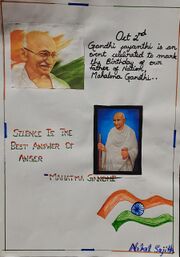 Oct 2nd
Gandhi jayanthi is an
event celebrated to mark
the Birthday of our
father of Nation,
Mahatma Gandhi..
SILENCE IS THE
BEST ANSWER OF
ANGER
- MAHATMA GANDHI
Nihal Sajith